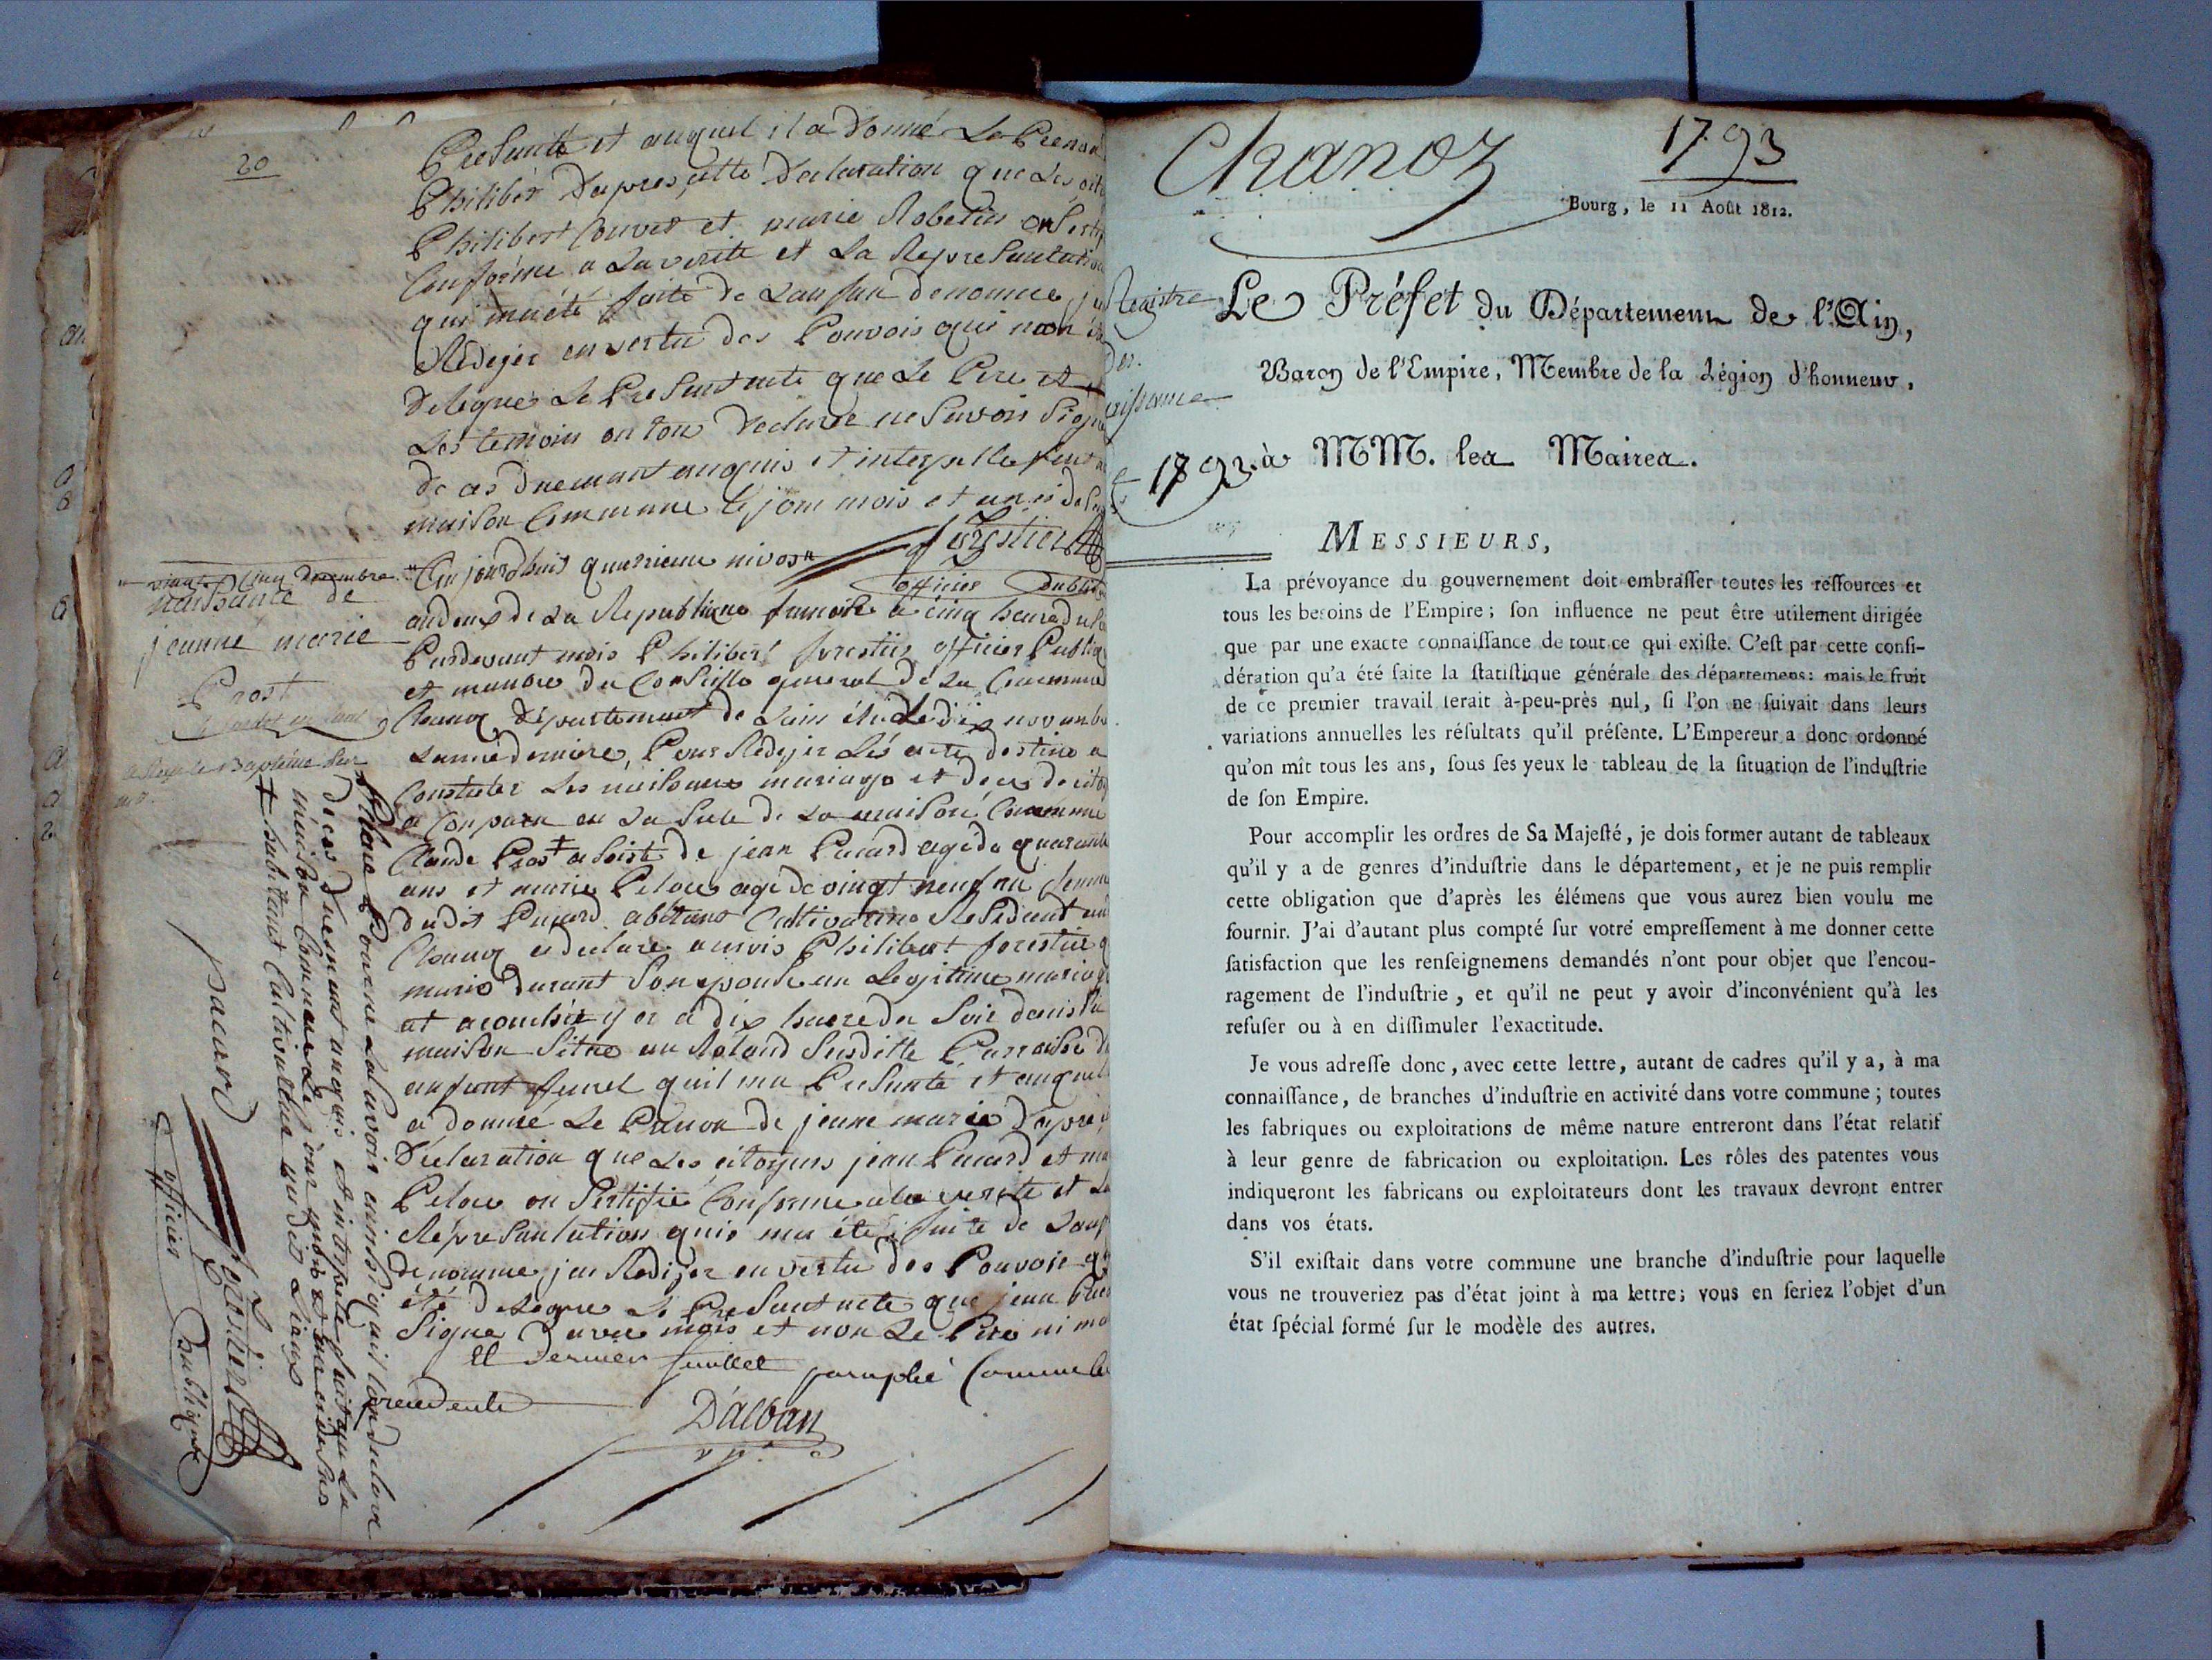 20
Presenté et auquel il a donné Le Prenon
Philiber Dapres cette Declaration que Les
Philibert Convert et marie Robelin on
Conforme a La verite et La Representation
qui ma été faite de Lanfan denomme jai
Rediger en vertu des Pouvois qui mon
Delegué Le Presant acte que Le Pere et
Les temoins on tou Declaré ne Savoir Signe
de ces Duemant anquis et interpelle
maison Commune le jour mois et an
forestier
officier Publi
vingt Cinq Decembre
naissance de
jeanne marie
Prost
Cejourdhuis quatrieme nivose
an deux de La Republique francoise a cinq heure du
Pardevant mois Philibert forestier officier Public
et manbre du Conseille general de La Commune
Chanoz Département de Lain élu Le dix novanbre
Lannee derniere, Pour Rediger Lés acte destine a
Constater Les naissance mariage et deces de
a Conparu en La Sale de La maison Commune
Claude Prost + asisté de jean Pacard age de quarante
ans et marie Pelous age de vingt neuf an femme
dudit Pacard abitans Cultivateur Residant
Chanoz a declare a mois Philibert forestier
marie durant Son epouse en Legitime mariage
et acouchée y er a dix heure du Soir dans La
maison Situe au Roland Susditte Parroisse
anfant femel quil ma Presanté et auquel
a donné Le Prenon de jeane marie Dapre
Declaration que Les citoyens jean Pacard et
Pelous on Sertifié Conforme a la verite et La
Representation qui ma été faite de
denomme, jai Rediger en vertu des Pouvoir
été delegue Le Presant acte que jean
Signe Davec mois et non Le Pere ni
et dernier feuillet paraphé Comme les
precedents
D'alban
deces Duemant anquis et interpelé fait a La
maison Commune Le jour mois et an cidesus
+ habitant Cultivateur audit Lieux
pacard
forestier
officier Publique
Chanoz 1793
Bourg, le 11 Août 1812.
Registre
Des
naissance
Le Préfet du Département de l'Ain,
Baron de l'Empire, Membre de la Légion d'honneur,
1793.
à MM. les Maires.
MESSIEURS,
La prévoyance du gouvernement doit embraſſer toutes les reſſources et
tous les beſoins de l'Empire; ſon influence ne peut être utilement dirigée
que par une exacte connaiſſance de tout ce qui exiſte. C'eſt par cette conſi-
dération qu'a été faite la ſtatiſtique générale des départemens: mais le fruit
de ce premier travail ſerait à-peu-près nul, ſi l'on ne ſuivait dans leurs
variations annuelles les réſultats qu'il préſente. L'Empereur a donc ordonné
qu'on mît tous les ans, ſous ſes yeux le tableau de la ſituation de l'induſtrie
de ſon Empire.
Pour accomplir les ordres de Sa Majeſté, je dois former autant de tableaux
qu'il y a de genres d'induſtrie dans le département, et je ne puis remplir
cette obligation que d'après les élémens que vous aurez bien voulu me
fournir. J'ai d'autant plus compté ſur votre empreſſement à me donner cette
ſatisfaction que les renſeignemens demandés n'ont pour objet que l'encou-
ragement de l'induſtrie, et qu'il ne peut y avoir d'inconvénient qu'à les
refuſer ou à en diſſimuler l'exactitude.
Je vous adreſſe donc, avec cette lettre, autant de cadres qu'il y a, à ma
connaiſſance, de branches d'induſtrie en activité dans votre commune; toutes
les fabriques ou exploitations de même nature entreront dans l'état relatif
à leur genre de fabrication ou exploitation. Les rôles des patentes vous
indiqueront les fabricans ou exploitateurs dont les travaux devront entrer
dans vos états.
S'il exiſtait dans votre commune une branche d'induſtrie pour laquelle
vous ne trouveriez pas d'état joint à ma lettre; vous en feriez l'objet d'un
état ſpécial formé ſur le modèle des autres.